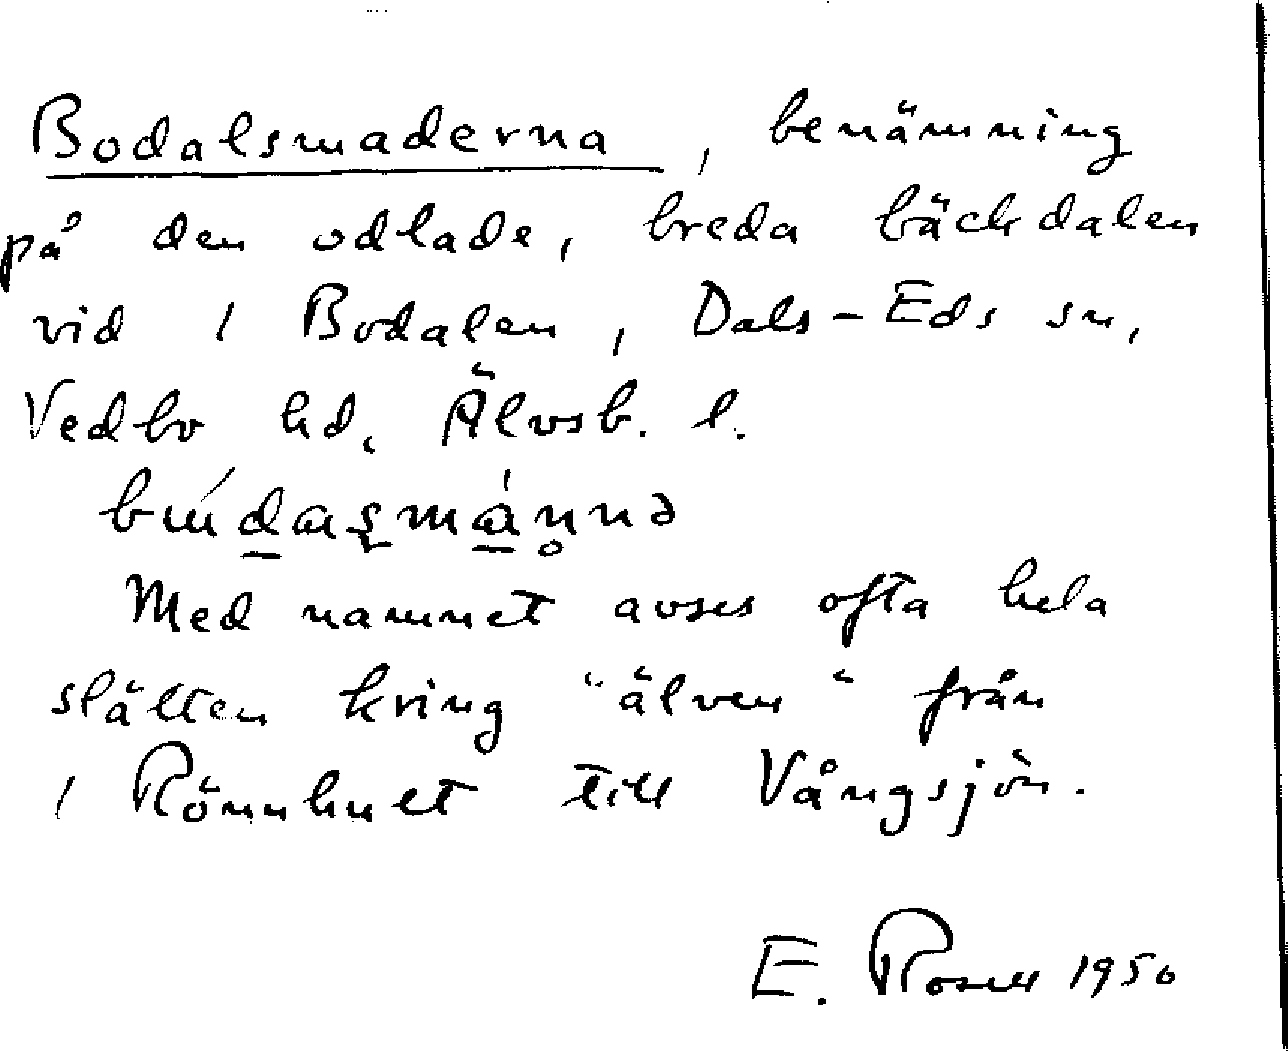 Bodalsmaderna, benämning
på den odlade, breda bäckdalen
vid / Bodalen, Dals-Eds sn,
Vedbo hd, Älvsb. l.
Med namnet avses ofta hela
slätten kring "älven" från
/ Rönnhult till Vångsjön.
E. Rosell 1950